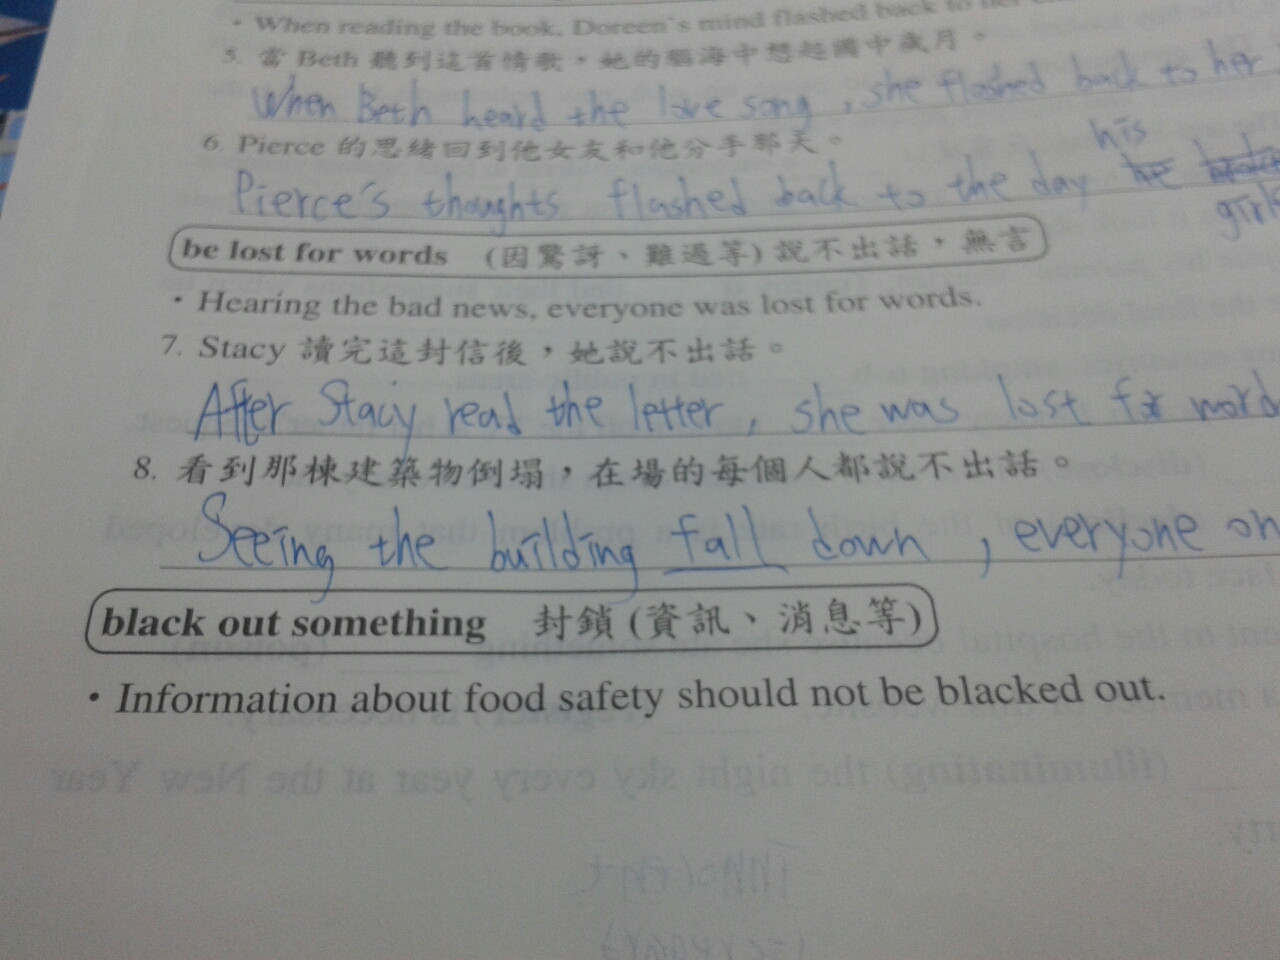 • When reading the book, Doreen's mind flashed back to her
5. 當 Beth 聽到這首情歌，她的腦海中想起國中歲月。
When Beth heard the love song, she flashed back to her
6. Pierce 的思緒回到他女友和他分手那天。
his
Pierce's thoughts flashed back to the day he
be lost for words (因驚訝、難過等) 說不出話，無言
• Hearing the bad news, everyone was lost for words.
7. Stacy 讀完這封信後，她說不出話。
After Stacy read the letter, she was lost for word
8. 看到那棟建築物倒塌，在場的每個人都說不出話。
Seeing the building fall down, everyone on
black out something 封鎖 (資訊、消息等)
• Information about food safety should not be blacked out.